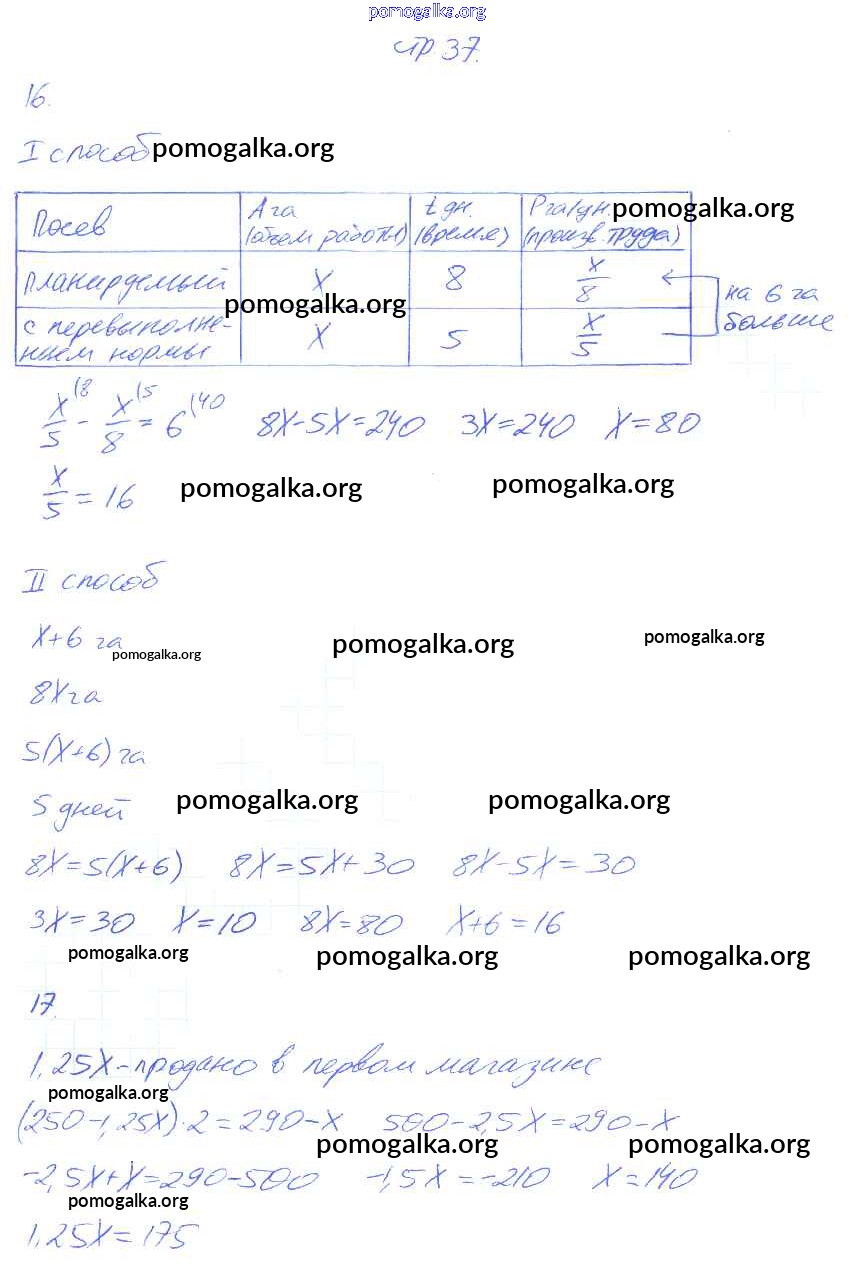 pomogalka.org
стр 37.
16.
I способ pomogalka.org
Посев | A га (объем работы) | t дн. (время) | P га/дн. (произв. труда) pomogalka.org
планируемый | x | 8 | x/8
pomogalka.org
с перевыполнением нормы | x | 5 | x/5
на 6 га больше
x/5 (8 - x/8 (5 = 6 (40 8x-5x=240 3x=240 x=80
x/5 = 16 pomogalka.org pomogalka.org
II способ
x+6 га pomogalka.org pomogalka.org pomogalka.org
8x га
5(x+6) га
5 дней pomogalka.org pomogalka.org
8x=5(x+6) 8x=5x+30 8x-5x=30
3x=30 x=10 8x=80 x+6=16
pomogalka.org pomogalka.org pomogalka.org
17.
1,25x-продано в первом магазине
pomogalka.org
(250-1,25x)·2=290-x 500-2,5x=290-x
pomogalka.org pomogalka.org
-2,5x+x=290-500 -1,5x=-210 x=140
pomogalka.org
1,25x=175